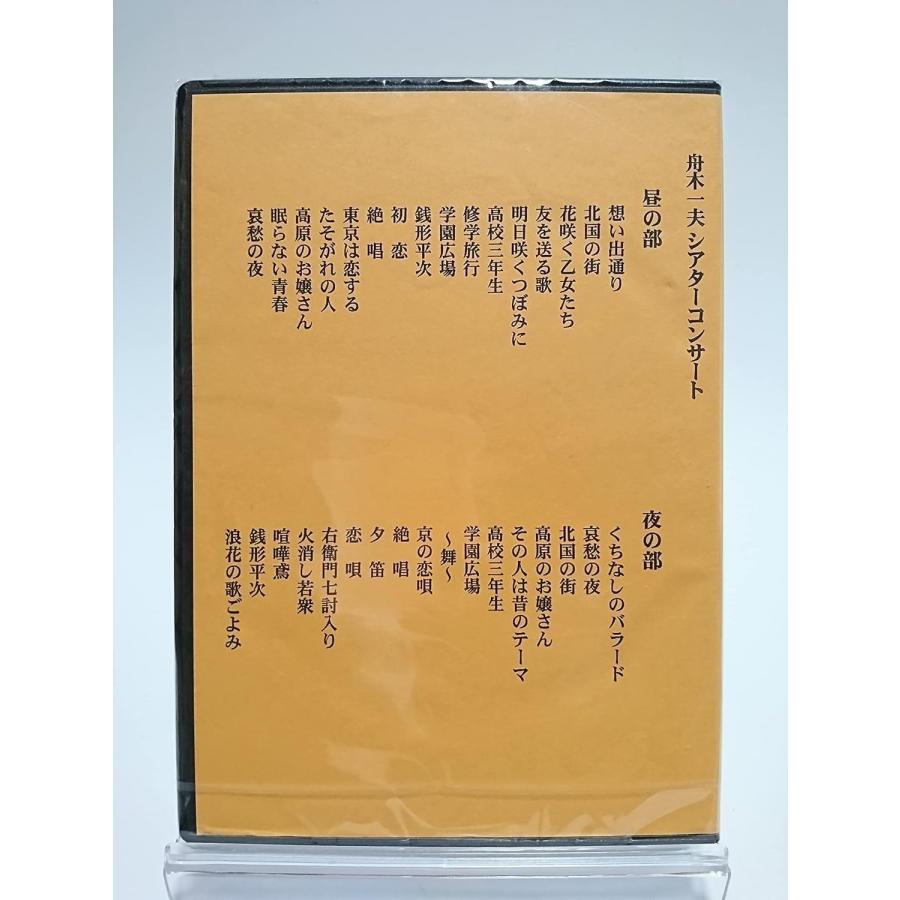 舟木一夫 シアターコンサート
昼の部
想い出通り
北国の街
花咲く乙女たち
友を送る歌
明日咲くつぼみに
高校三年生
修学旅行
学園広場
銭形平次
初恋
絶唱
東京は恋する
たそがれの人
高原のお嬢さん
眠らない青春
哀愁の夜
夜の部
くちなしのバラード
哀愁の夜
北国の街
高原のお嬢さん
その人は昔のテーマ
高校三年生
学園広場
～舞～
京の恋唄
絶唱
夕笛
恋唄
右衛門七討入り
火消し若衆
喧嘩鳶
銭形平次
浪花の歌ごよみ